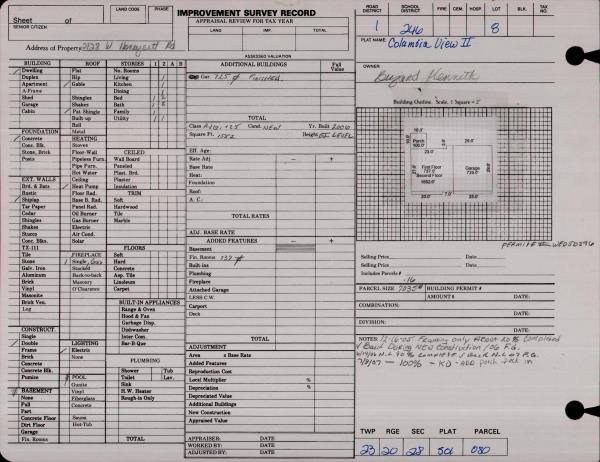 Sheet of
SENIOR CITIZEN
LAND CODE
PHASE
IMPROVEMENT SURVEY RECORD
APPRAISAL REVIEW FOR TAX YEAR
LAND IMP. TOTAL
ROAD DISTRICT
SCHOOL DISTRICT
FIRE CEM. HOSP. LOT BLK. TAX NO.
1 246 8
PLAT NAME:
Columbia View II
Address of Property
ASSESSED VALUATION
OWNER:
Kenneth
BUILDING ROOF STORIES 1 2 A B
Dwelling Flat No. Rooms
Duplex Hip Living
Apartment Gable Kitchen
A-Frame Dining
Shed Shingles Bed
Garage Shakes Bath
Cabin Pat Shingle Family
Built-up Utility
Roll
FOUNDATION Metal
Concrete HEATING
Conc. Blk. Stoves CEILED
Stone, Brick Floor-Wall Wall Board
Posts Pipeless Furn. Paneled
Pipe Furn. Plast. Brd.
Hot Water Plaster
EXT. WALLS Ceiling Insulation
Brd. & Bats Heat Pump TRIM
Rustic Floor Rad. Soft
Shiplap Base B. Rad. Hardwood
Tar Paper Panel Rad. Tile
Cedar Oil Burner Marble
Shingles Gas Burner
Shakes Electric
Stucco Air Cond.
Conc. Blks. Solar
TX-111 FLOORS
Tile FIREPLACE Soft
Stone Single, Gas Hard
Galv. Iron Stacked Concrete
Aluminum Back-to-back Asp. Tile
Brick Masonry Linoleum
Vinyl O'Clearance Carpet
Masonite
Brick Ven.
Log
BUILT-IN APPLIANCES
Range & Oven
Hood & Fan
Garbage Disp.
Dishwasher
Inter Com.
Bar-B-Que
CONSTRUCT.
Single
Double LIGHTING
Frame Electric
Brick None
Concrete
Concrete Blk.
Pumice POOL
Gunite
BASEMENT Vinyl
None Fiberglass
Full Concrete
Part
Concrete Floor Sauna
Dirt Floor Hot-Tub
Garage
Fin. Rooms
PLUMBING
Shower Tub
Toilet Lav.
Sink
H.W. Heater
Rough-in Only
TOTAL
ADDITIONAL BUILDINGS Full Value
Gar. 725 # Finished
TOTAL
Class Cond. NEW Yr. Built 2006
Square Ft. Height
Eff. Age:
Rate Adj. − +
Base Rate
Heat:
Foundation
Roof:
A. C.:
TOTAL RATES
ADJ. BASE RATE
ADDED FEATURES − +
Basement
Fin. Rooms 737 #
Built-ins
Plumbing
Fireplace
Attached Garage
LESS C.W.
Carport
Deck
TOTAL
ADJUSTMENT
Area x Base Rate
Added Features
Reproduction Cost
Local Multiplier %
Depreciation %
Depreciated Value
Additional Buildings
New Construction
Appraised Value
APPRAISER: DATE
WORKED BY: DATE
ADJUSTED BY: DATE
Building Outline. Scale, 1 Square =
Porch
100.0'
First Floor
737.0'
Second Floor
Garage
725.0'
7.0'
25.0'
Selling Price DATE:
Selling Price DATE:
Includes Parcels #
.16
PARCEL SIZE 7035# BUILDING PERMIT #
AMOUNT $ DATE:
COMBINATION:
DATE:
DIVISION:
DATE:
NOTES: 12-16-05 Framing only
100%
TWP RGE SEC PLAT PARCEL
23 20 28 501 080